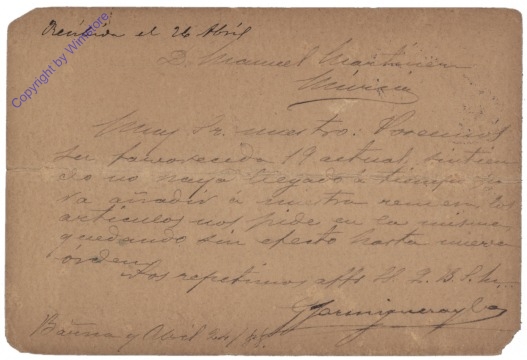 Recibida el 26 Abril
D. Manuel Martinez
Murcia
Muy Sr. nuestro: Poseemos
su favorecida 19 actual, sintien
do no haya llegado á tiempo pa
ra añadir á nuestra remesa los
artículos nos pide en la misma,
quedando sin efecto hasta nueva
órden.
Nos repetimos affs. S. Q. B. S. M.
y Ca
Abril
Copyright by Winstore